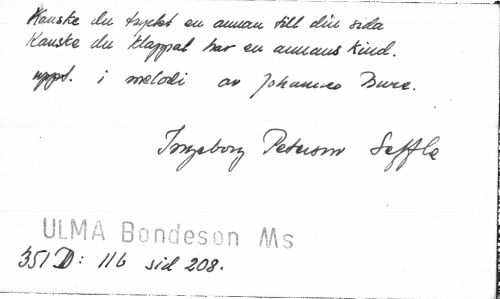 Kanske du tryckt en annan till din sida
Kanske du klappat har en annans kind.
uppt. i melodi av Johannes Bure.
Ingeborg Peterson Seffle
ULMA Bondeson Ms
351 D: 116 sid 208.